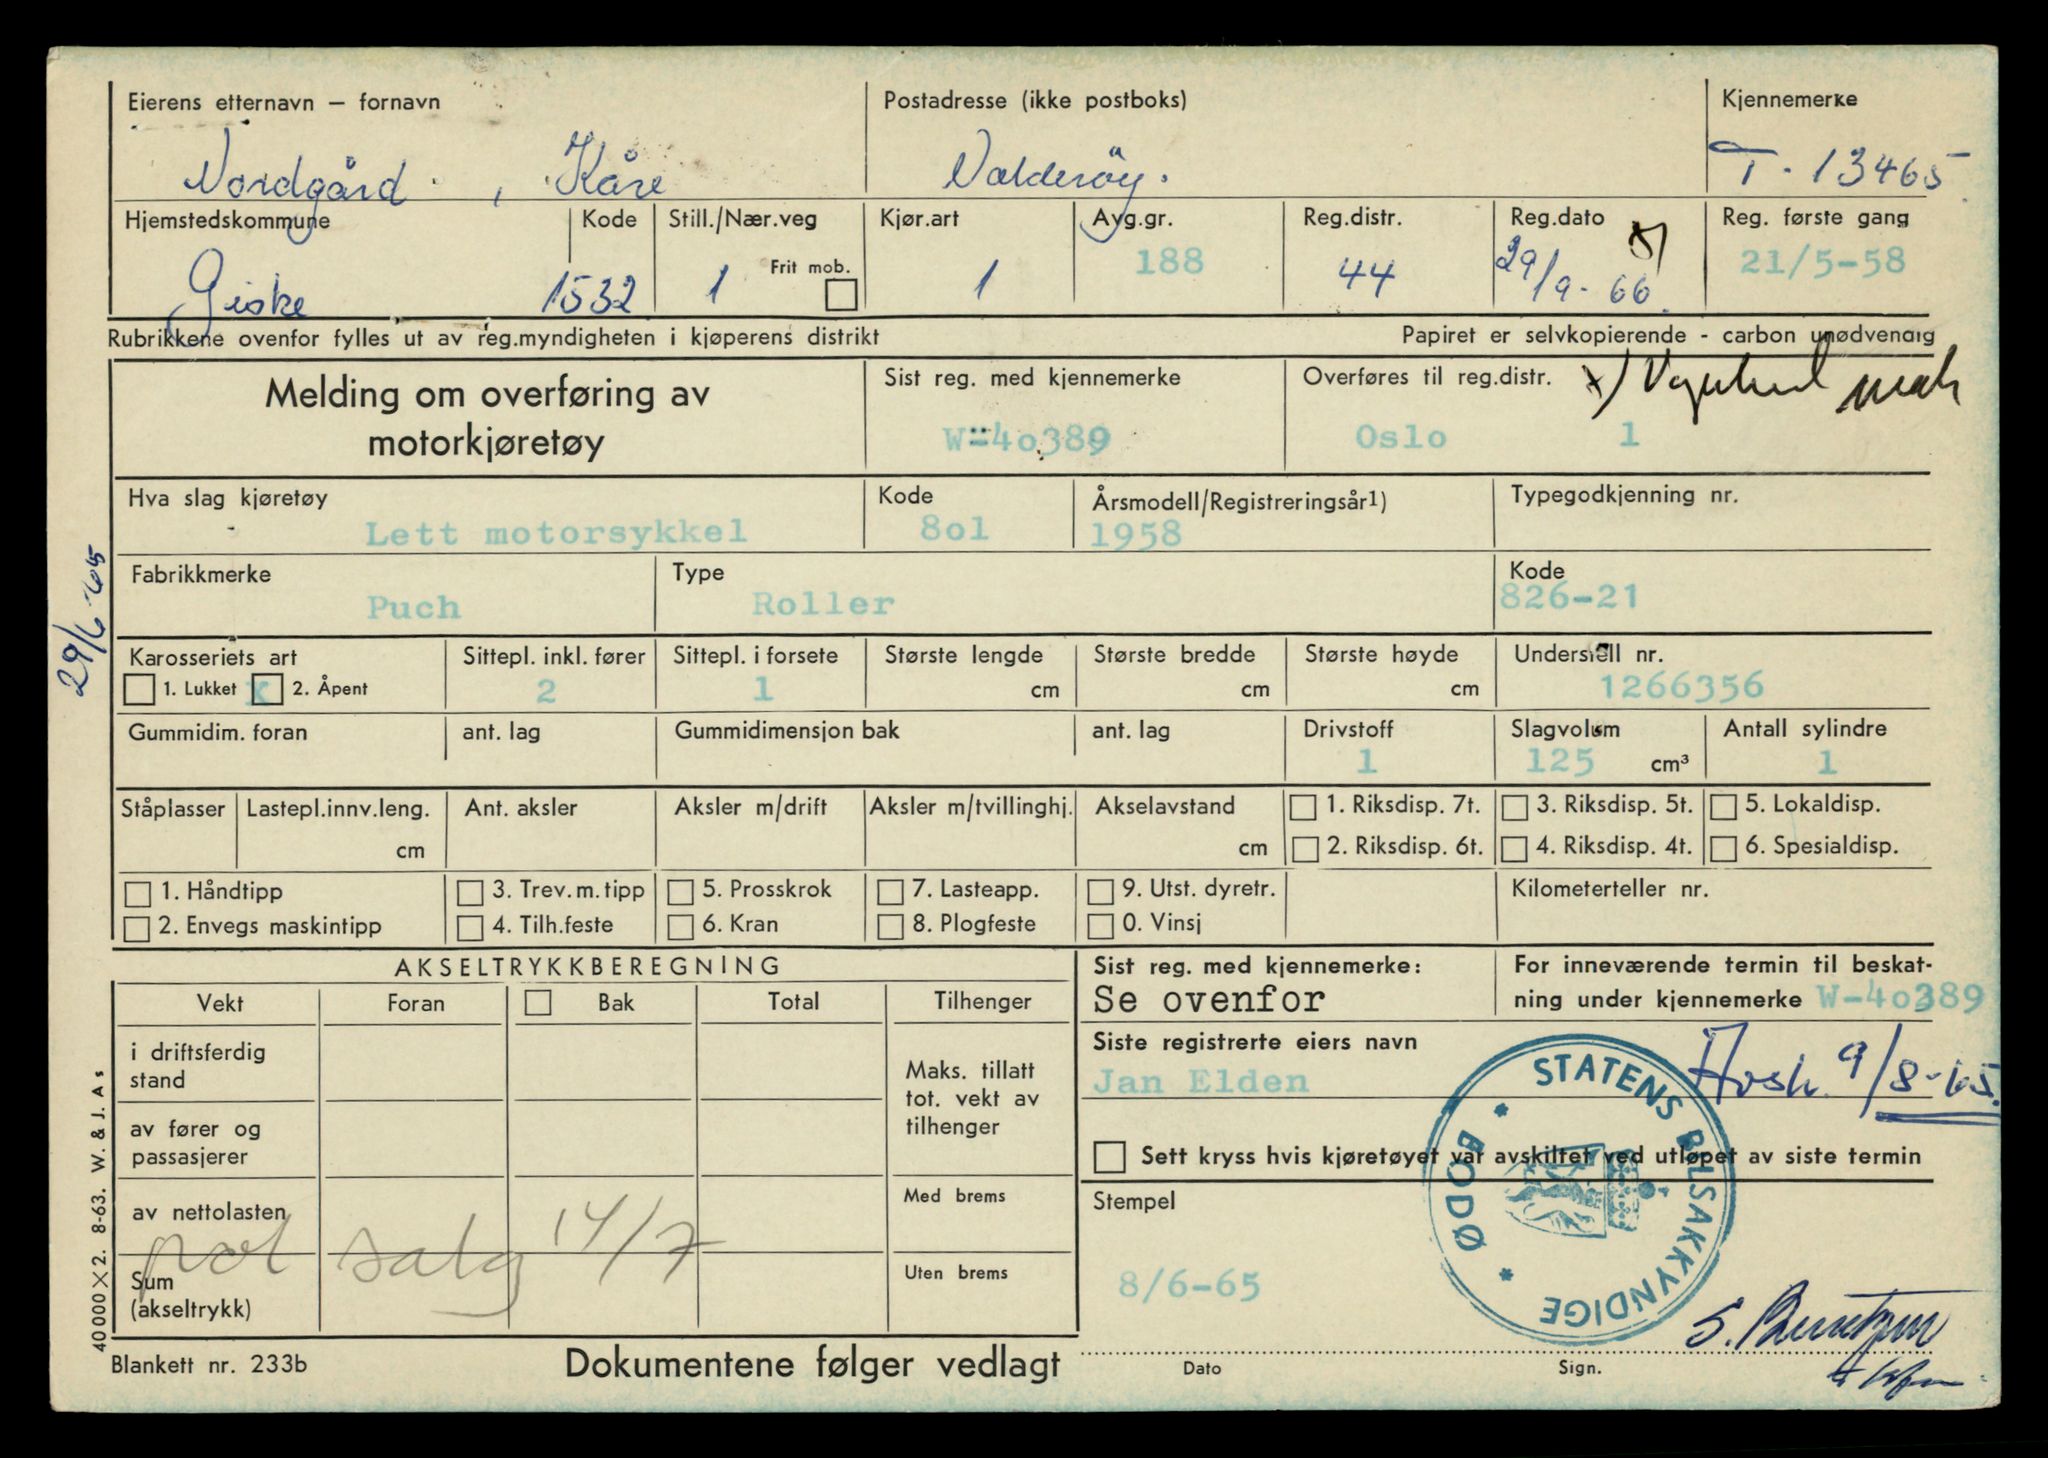 Eierens etternavn – fornavn Postadresse (ikke postboks) Kjennemerke
Nordgård, Kåre Valderöy. T-13465
Hjemstedskommune Kode Still./Nær.veg Kjør.art Avg.gr. Reg.distr. Reg.dato Reg. første gang
Giske 1532 1 Frit mob. 1 188 44 29/9-66 x) 21/5-58
Rubrikkene ovenfor fylles ut av reg.myndigheten i kjøperens distrikt Papiret er selvkopierende - carbon unødvendig
Melding om overføring av motorkjøretøy
Sist reg. med kjennemerke Overføres til reg.distr. x)
W-40389 Oslo 1
Hva slag kjøretøy Kode Årsmodell/Registreringsår1) Typegodkjenning nr.
Lett motorsykkel 8o1 1958
Fabrikkmerke Type Kode
Puch Roller 826-21
Karosseriets art Sittepl. inkl. fører Sittepl. i forsete Største lengde Største bredde Største høyde Understell nr.
1. Lukket x 2. Åpent 2 1 cm cm cm 1266356
Gummidim. foran ant. lag Gummidimensjon bak ant. lag Drivstoff Slagvolum Antall sylindre
1 125 cm³ 1
Ståplasser Lastepl.innv.leng. Ant. aksler Aksler m/drift Aksler m/tvillinghj. Akselavstand 1. Riksdisp. 7t. 3. Riksdisp. 5t. 5. Lokaldisp.
cm cm 2. Riksdisp. 6t. 4. Riksdisp. 4t. 6. Spesialdisp.
1. Håndtipp 3. Trev.m.tipp 5. Prosskrok 7. Lasteapp. 9. Utst. dyretr. Kilometerteller nr.
2. Envegs maskintipp 4. Tilh.feste 6. Kran 8. Plogfeste 0. Vinsj
AKSELTRYKKBEREGNING
Vekt Foran Bak Total Tilhenger
i driftsferdig stand
Maks. tillatt tot. vekt av tilhenger
av fører og passasjerer
av nettolasten Med brems
salg 14/7
Sum (akseltrykk) Uten brems
Sist reg. med kjennemerke: For inneværende termin til beskat-
Se ovenfor ning under kjennemerke W-4o389
Siste registrerte eiers navn
Jan Elden Avsk. 9/8-65.
Sett kryss hvis kjøretøyet var avskiltet ved utløpet av siste termin
Stempel
STATENS BILSAKKYNDIGE * BODØ *
8/6-65
Dato Sign.
Blankett nr. 233b Dokumentene følger vedlagt
29/6-65
40000 X 2. 8-63. W. & J. As